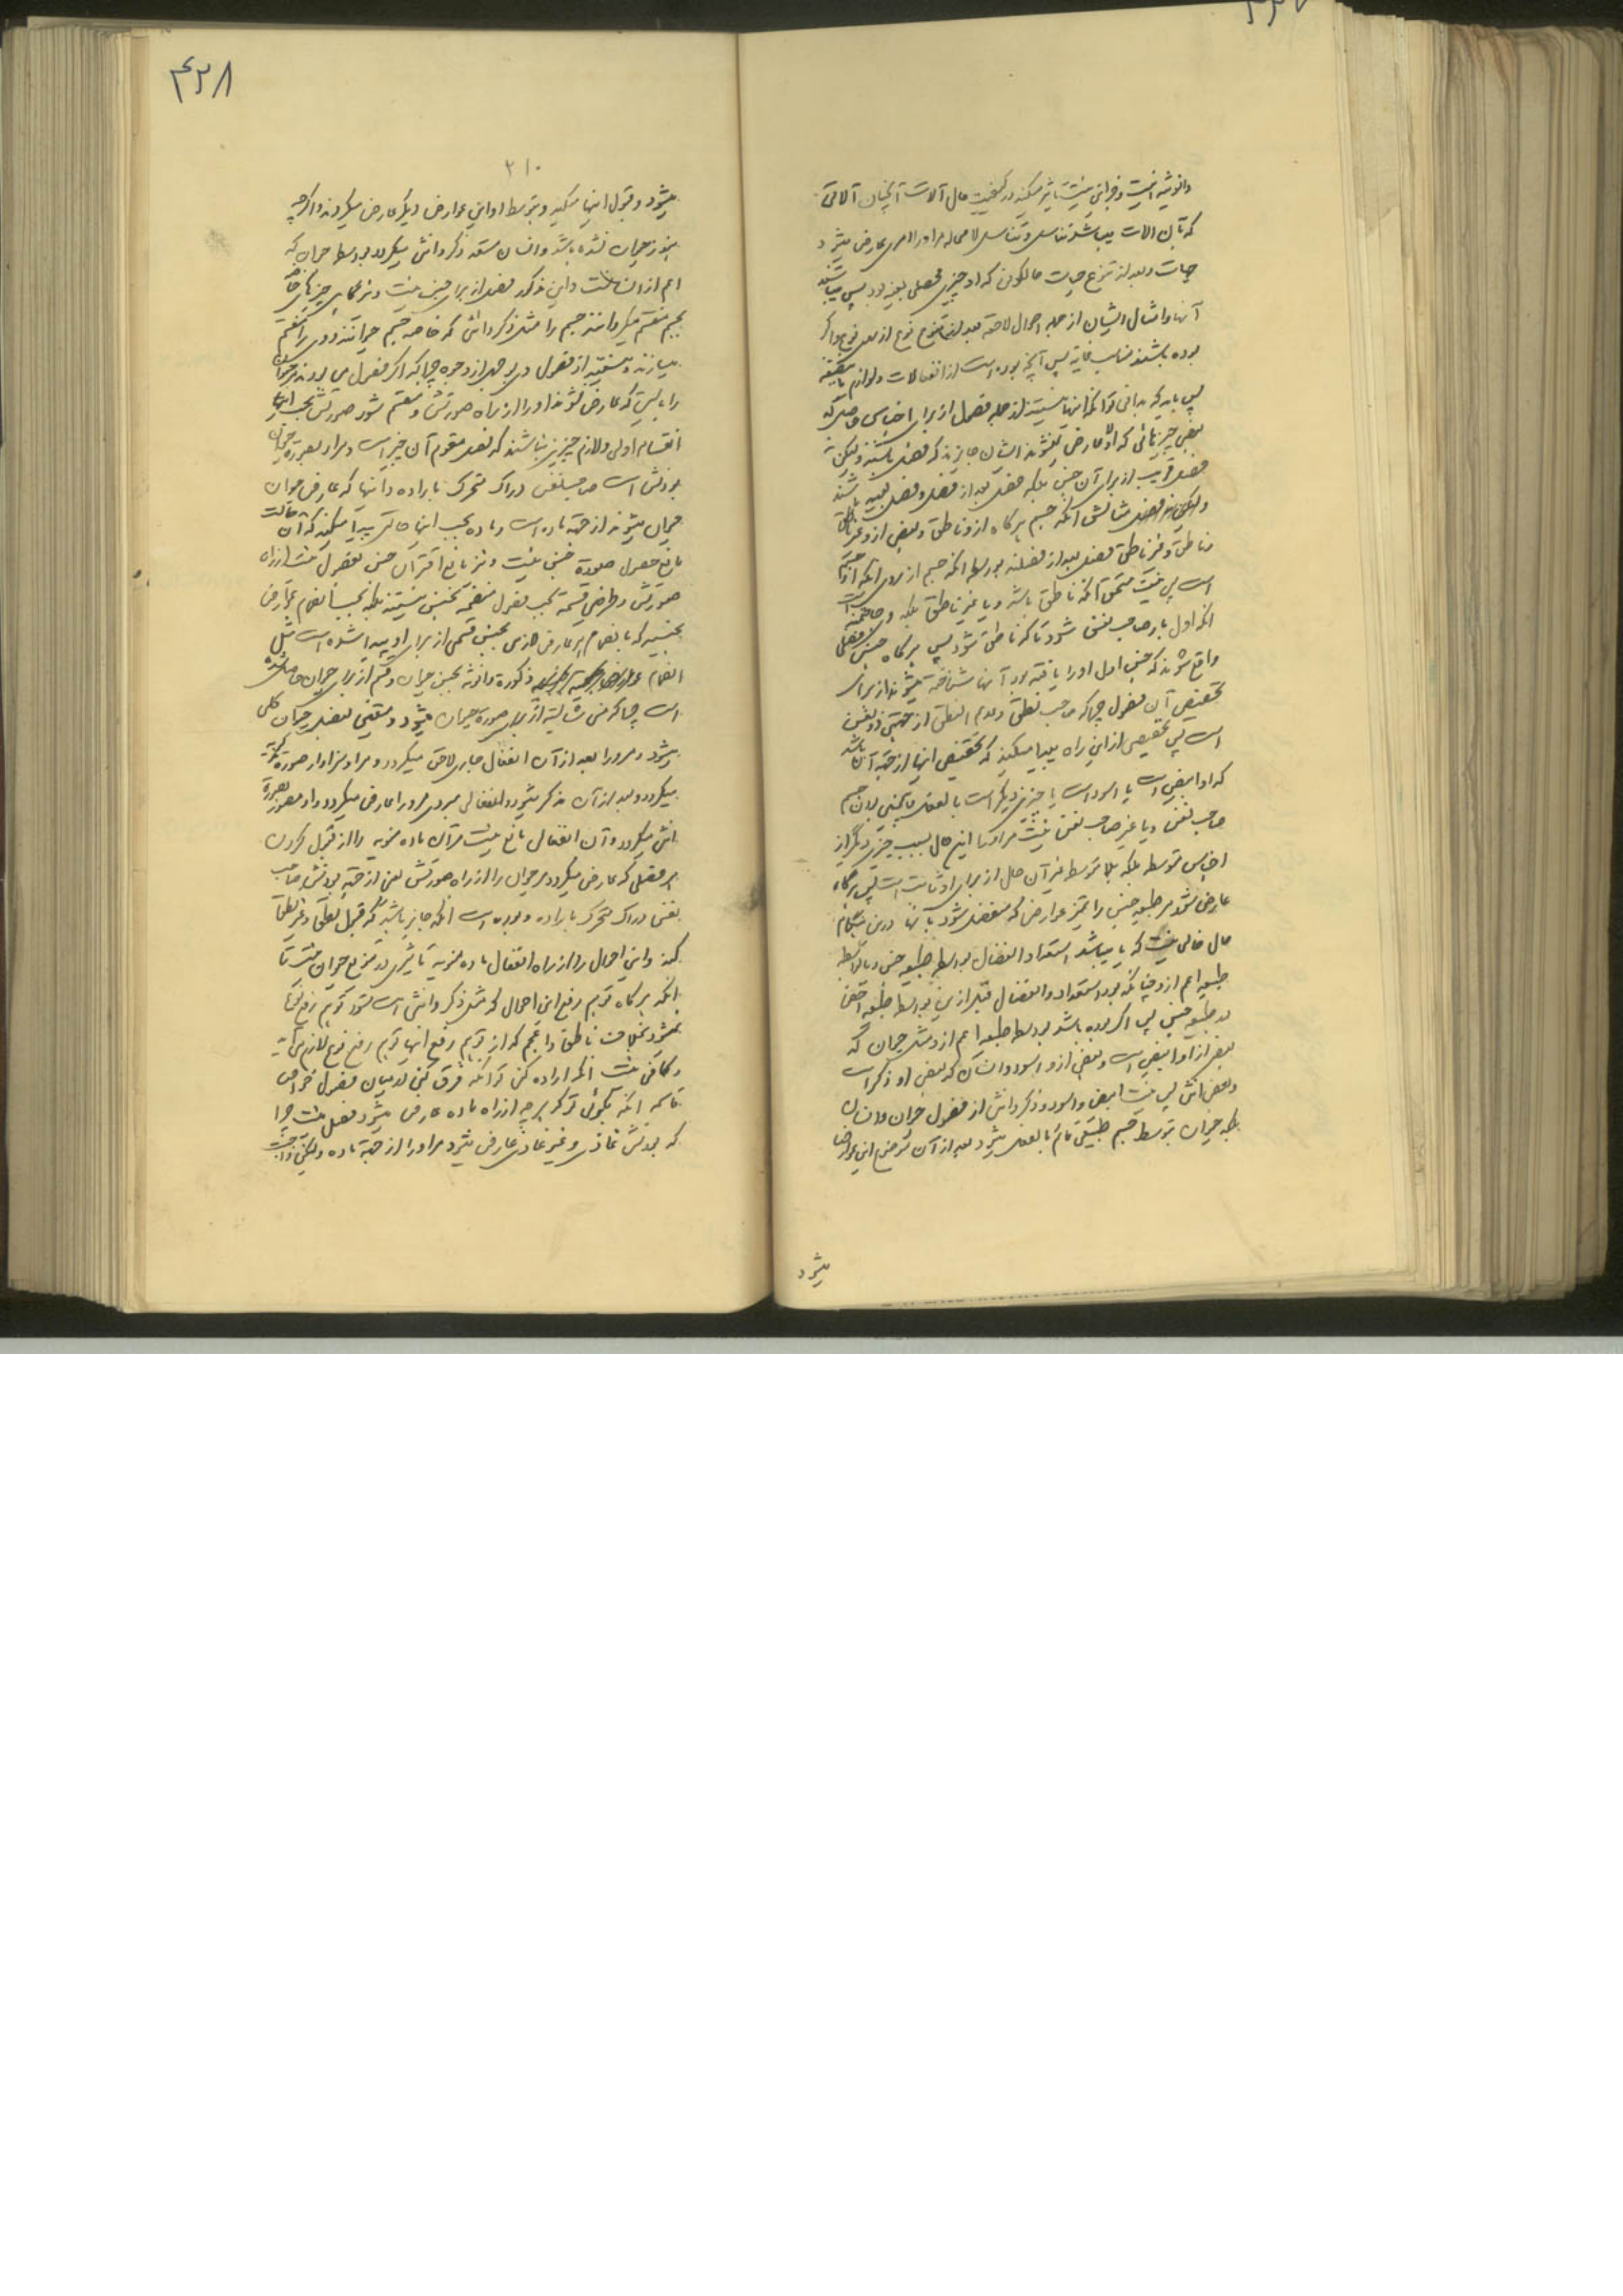 وانوثیة نیست و خوانی نیست تاثیر میکند در کیفیت حال آلات آنچنان آلاتی
که آن آلات میباشد تناسل و تناسل لا محاله مر او را امری عارض میشود
حیات و بعد از تنوع حیات حالکونی که او چیزی محصلی بعینه بود پس میباشند
آنها و امثال ایشان از جمله احوال لاحقه بعد از تنوع نوع از نوع و اگر
بوده باشند مناسب غایة پس آنچه بوده است از انفعالات و لوازم باین صفة
پس باید که بدانی تو آنکه آنها نیستند از جمله فصول از برای اجناس و حال آنکه
بعض چیزهائی که اولا عارض میشوند ایشان جایزند که فصل باشند ولیکن نه
فصل قریب از برای آن جنس بلکه فصل بعد از فصل و فصل بعید باشند
مثالش آنکه جسم هر گاه از و ناطق و بعضی از و غیر ناطق
و ناطق و غیر ناطق فصل بعد از فصلند بواسطه آنکه جسم از برای آنکه او جسم
است پس نیست مستحق آنکه ناطق باشد و یا غیر ناطق بلکه
آنکه اول بار صاحب نفس شود تا که ناطق شود پس هر گاه جنس فصلی
واقع شوند که جنس اول او را یافته بود آنها شناخته میشوند از برای
تخصیص آن فصول چرا که صاحب نطق و عدم النطق از جهتین ذو نفس
است پس تخصیص از این راه پیدا میکند که تخصیص اینها از جهة آن باشد
که او ابیض است یا اسود است یا چیزی دیگر است بالفعل و همچنین بودن جسم
صاحب نفس و یا غیر صاحب نفس نیست مر او را این حال بسبب چیزی دیگر از
اجناس متوسطه بلکه بلا توسط غیر آن حال از برای او ثابت است پس هر گاه
عارض شود مر طبیعة جنس را نیز عوارض که منفصل شود بآنها درین هنگام
حال خالی نیست که یا میباشد استعداد انفصال بواسطه طبیعة جنس و یا بواسطه
طبیعة اعم از و چنانکه بود استعداد و انفصال قبل ازین بواسطه طبیعة اخص
بود طبیعة جنس پس اگر بوده باشد بواسطه طبیعة اعم از و مثل حیوان که
بعض از او ابیض است و بعض از و اسود و انسان که بعض از و ذکر است
و بعض انثی پس نیست ابیض و اسود و ذکر و انثی از فصول حیوان و انسان
بلکه حیوان بتوسط جسم طبیعی قائم بالفعل میشود بعد از آن موضوع این عوارض
میشود
۴۲۸
۲۱۰
میشود و قبول اینها میکند و بتوسط او این عوارض دیگر عارض میگردند و اگر چه
هنوز حیوان نشده باشد و انسان مستعد ذکر و انثی میگردد بواسطه حیوان که
اعم از انسان است و این مذکور فصل از برای جنس نیست و نیز گاهی چیزهای خاصه
بجسم منقسم میگردانند جسم را مثل ذکر و انثی که خاصه جسم حیوانند و وی را منقسم
میسازند و نیستند از فصول وی بوجهی از وجوه چرا که اگر فصول می بودند مر حیوان
را بایست که عارض شوند او را از راه صورتش و منقسم شود صورتش بحسب اینها
انقسام اولی و لازم چیزی نباشند که فصل مقوم آن چیز است و مراد بصورت حیوان
بودنش است صاحب نفس دراک متحرک باراده و اینها که عارض حیوان
حیوان میشوند از جهة ماده است و ماده بحسب اینها حالی پیدا میکند که آن حالت
مانع حصول صورة جنس نیست و نیز مانع اقتران جنس بفصول نیست از راه
صورتش و طرفی قسمة بحسب فصول منقسمه بجنس نیستند بلکه بحسب انضمام عوارض
بجنسند که بانضمام هر عارض جزئی بجنس قسمی از برای او پیدا شده است مثل
انضمام ذکورة و انوثة بجنس حیوان و قسم از برای حیوان حاصل شده
است چرا که منی شایسته از برای صورة حیوان میشود و متعین بفصل حیوان کلی
میشود و مر و را بعد از آن انفعال حاری لاحق میگردد و مر او سزاوار صورة ذکریة
میگردد و بعد از آن مذکر میشود و انفعالی مبردی مر و را عارض میگردد و او مصور بصورة
انثی میگردد و آن انفعال مانع نیست مر آن ماده منویه را از قبول کردن
هر فصلی که عارض میگردد مر حیوان را از راه صورتش یعنی از جهة بودنش صاحب
نفس دراک متحرک باراده و بوده است آنکه جایز باشد که قبول نطق و غیر نطق
کند و این احوال را از راه انفعال ماده منویه تاثیری در تنویع حیوان نیست تا
آنکه هر گاه توهم رفع این احوال که مثل ذکر و انثی است شود توهم رفع نوع
نمیشود بخلاف ناطق و اعجم که از توهم رفع اینها توهم رفع نوع لازم می آید
و کافی نیست آنکه اراده کنی تو آنکه فرق کنی در میان فصول خواص
قاسمه آنکه بگوئی تو که هر چه از راه ماده عارض میشود فصل نیست چرا
که بودنش غاذی و غیر غاذی عارض میشود مر او را از جهة ماده ولیکن واجب